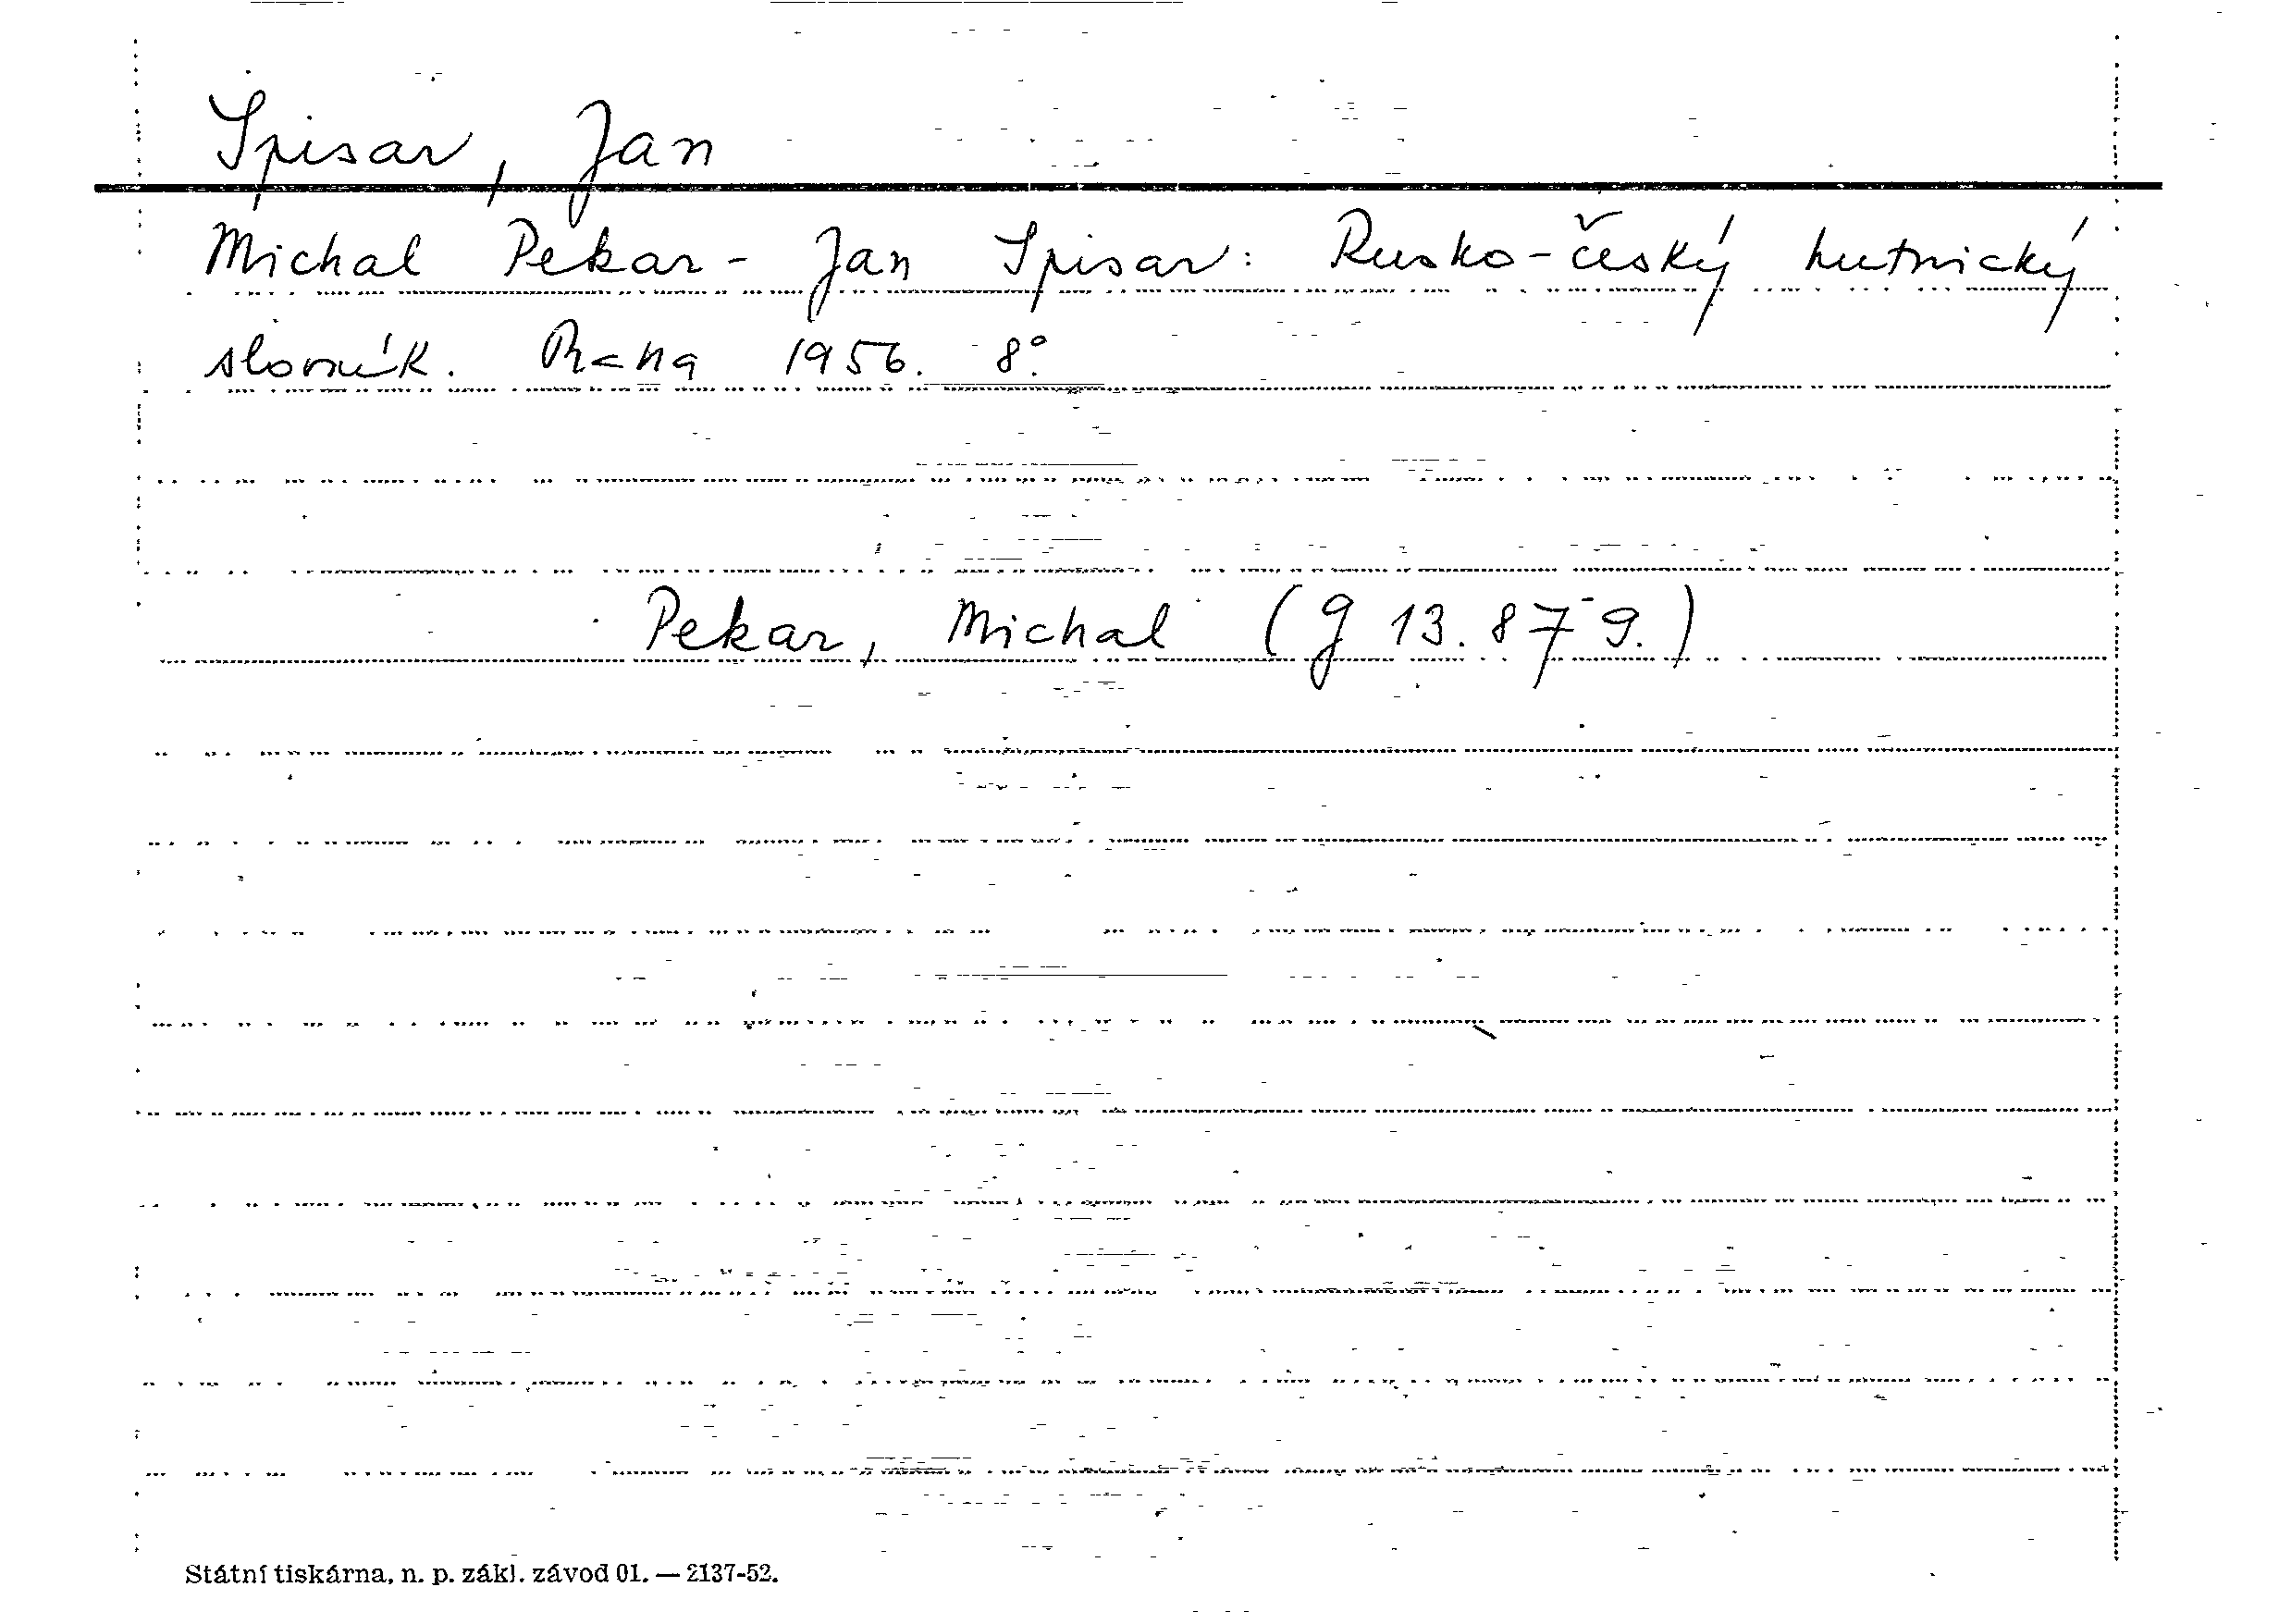 Spisar, Jan
Michal Pekar - Jan Spisar: Rusko-český hutnický
slovník. Praha 1956. 8°.
Pekar, Michal (g 13.879.)
Státní tiskárna, n. p. zákl. závod 01. — 2137-52.